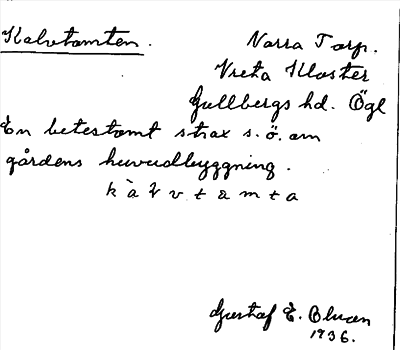 Kalvtomten.
Norra Torp.
Vreta Kloster
Gullbergs hd. Ögl
En betestomt strax s.ö. om
gårdens huvudbyggning.
k à l v t ə m t a
Gustaf E. Bluen
1936.